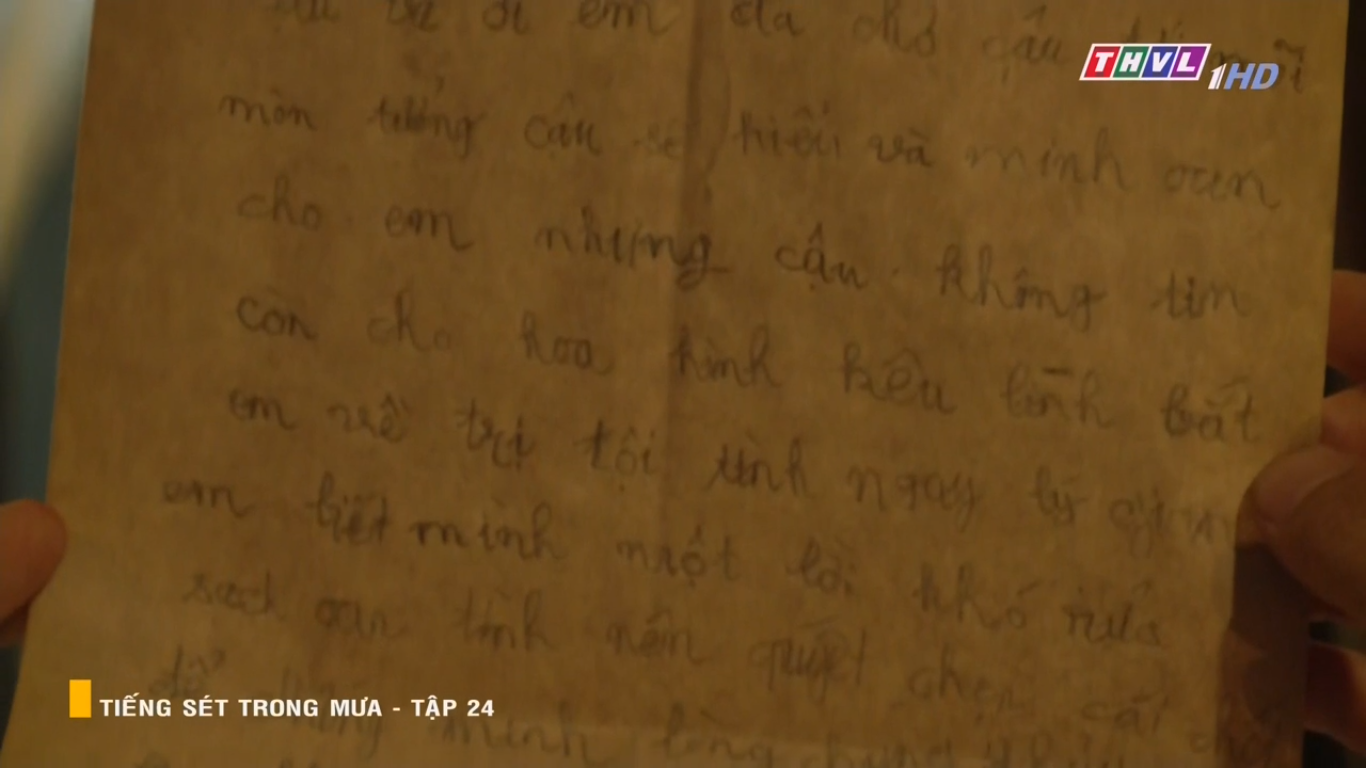 đi em đã chờ cậu
THVL1HD
mòn tưởng cậu sẽ hiểu và minh oan
cho em nhưng cậu không tin
còn cho hoa hình kêu lính bắt
em về trị tội tình ngay lý gian
em biết mình một lời khó rửa
sạch oan tình nên quyết chọn cái
để minh lòng
TIẾNG SÉT TRONG MƯA - TẬP 24